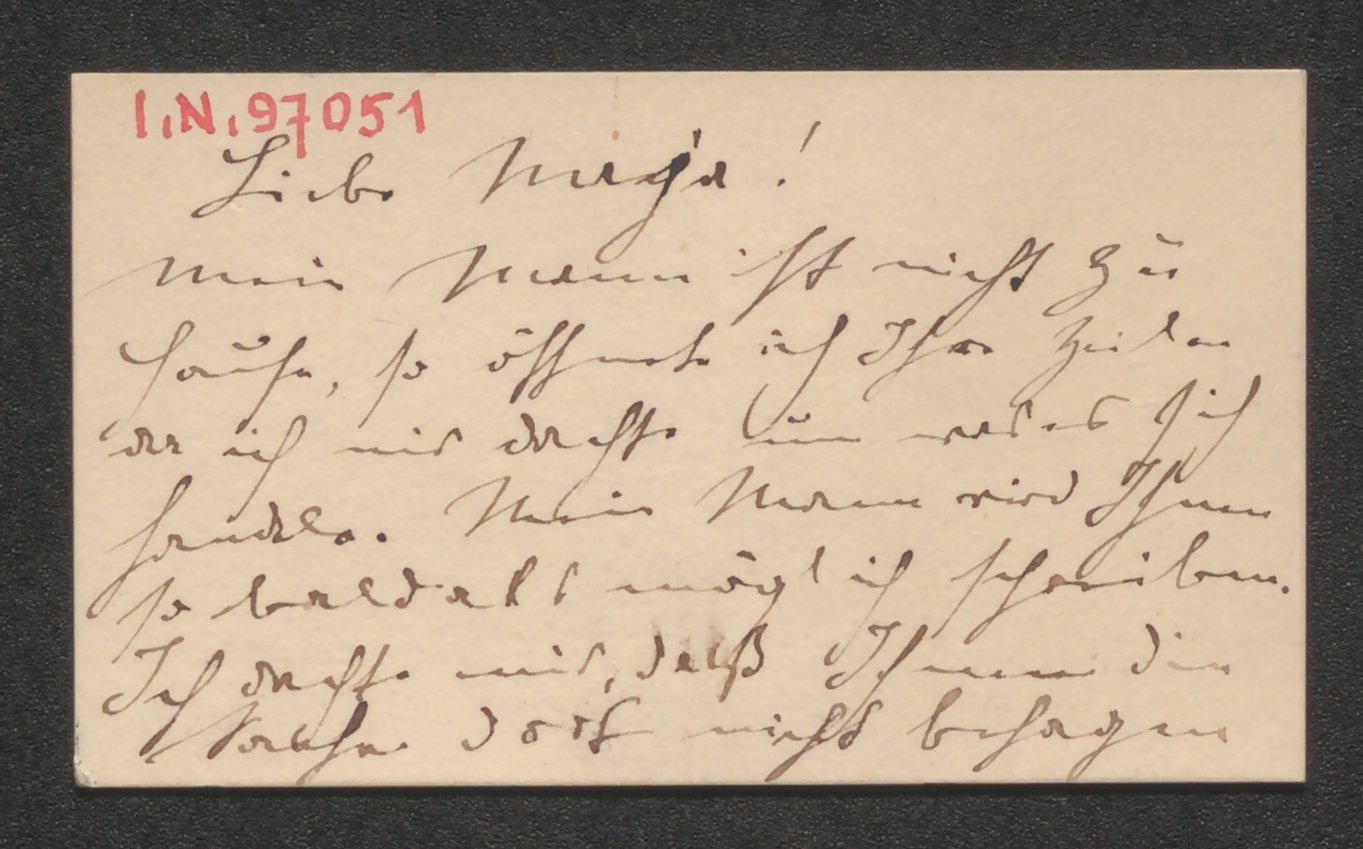 I.N. 97051
Liebe Maja!
Mein Mann ist nicht zu
Hause, so öffnete ich Ihre Zeilen
da ich mir dachte um was es sich
handle. Mein Mann wird Ihnen
so bald als möglich schreiben.
Ich dachte mir, daß Ihnen die
Sache dort nicht behagen